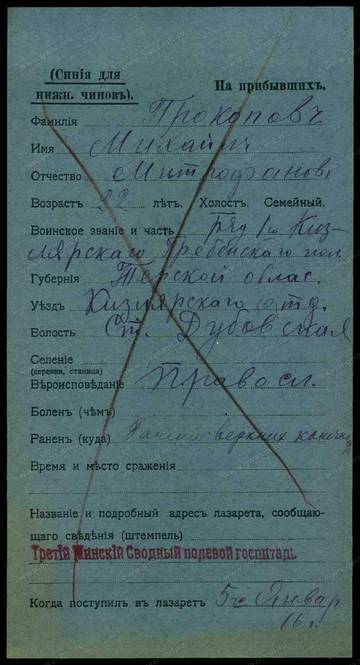 (Синія для
нижн. чиновъ).
На прибывшихъ.
Фамилія Прокоповъ
Имя Михаилъ
Отчество Митрофановъ
Возрастъ 22 лѣтъ. Холост. Семейный.
Воинское званіе и часть ряд 1го Киз-
лярскаго Гребенскаго пол.
Губернія Терской облас.
Уѣздъ Кизлярскаго отд.
Волость ст. Дубовская
Селеніе
(деревня, станица)
Вѣроисповѣданіе Правосл.
Боленъ (чѣмъ)
Раненъ (куда) верхних конечн
Время и мѣсто сраженія
Названіе и подробный адресъ лазарета, сообщаю-
щаго свѣдѣнія (штемпель)
Третій Минскій Сводный полевой госпиталь.
Когда поступилъ въ лазаретъ 5го Январ
16 г.